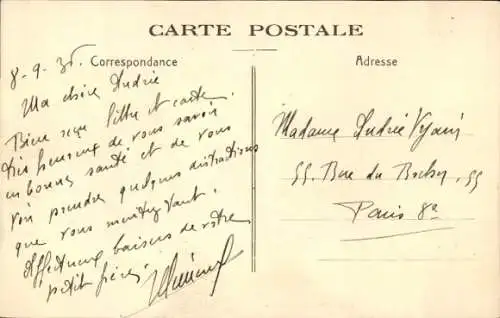 CARTE POSTALE
Correspondance
Adresse
8-9-36.
Ma chère Andrée
Bien reçu lettre et carte.
très heureux de vous savoir
en bonne santé et de vous
voir prendre quelques distractions
que vous méritez tant.
Affectueux baisers de votre
petit frère.
Madame Andrée
55. Rue du Rocher. 55
Paris 8e